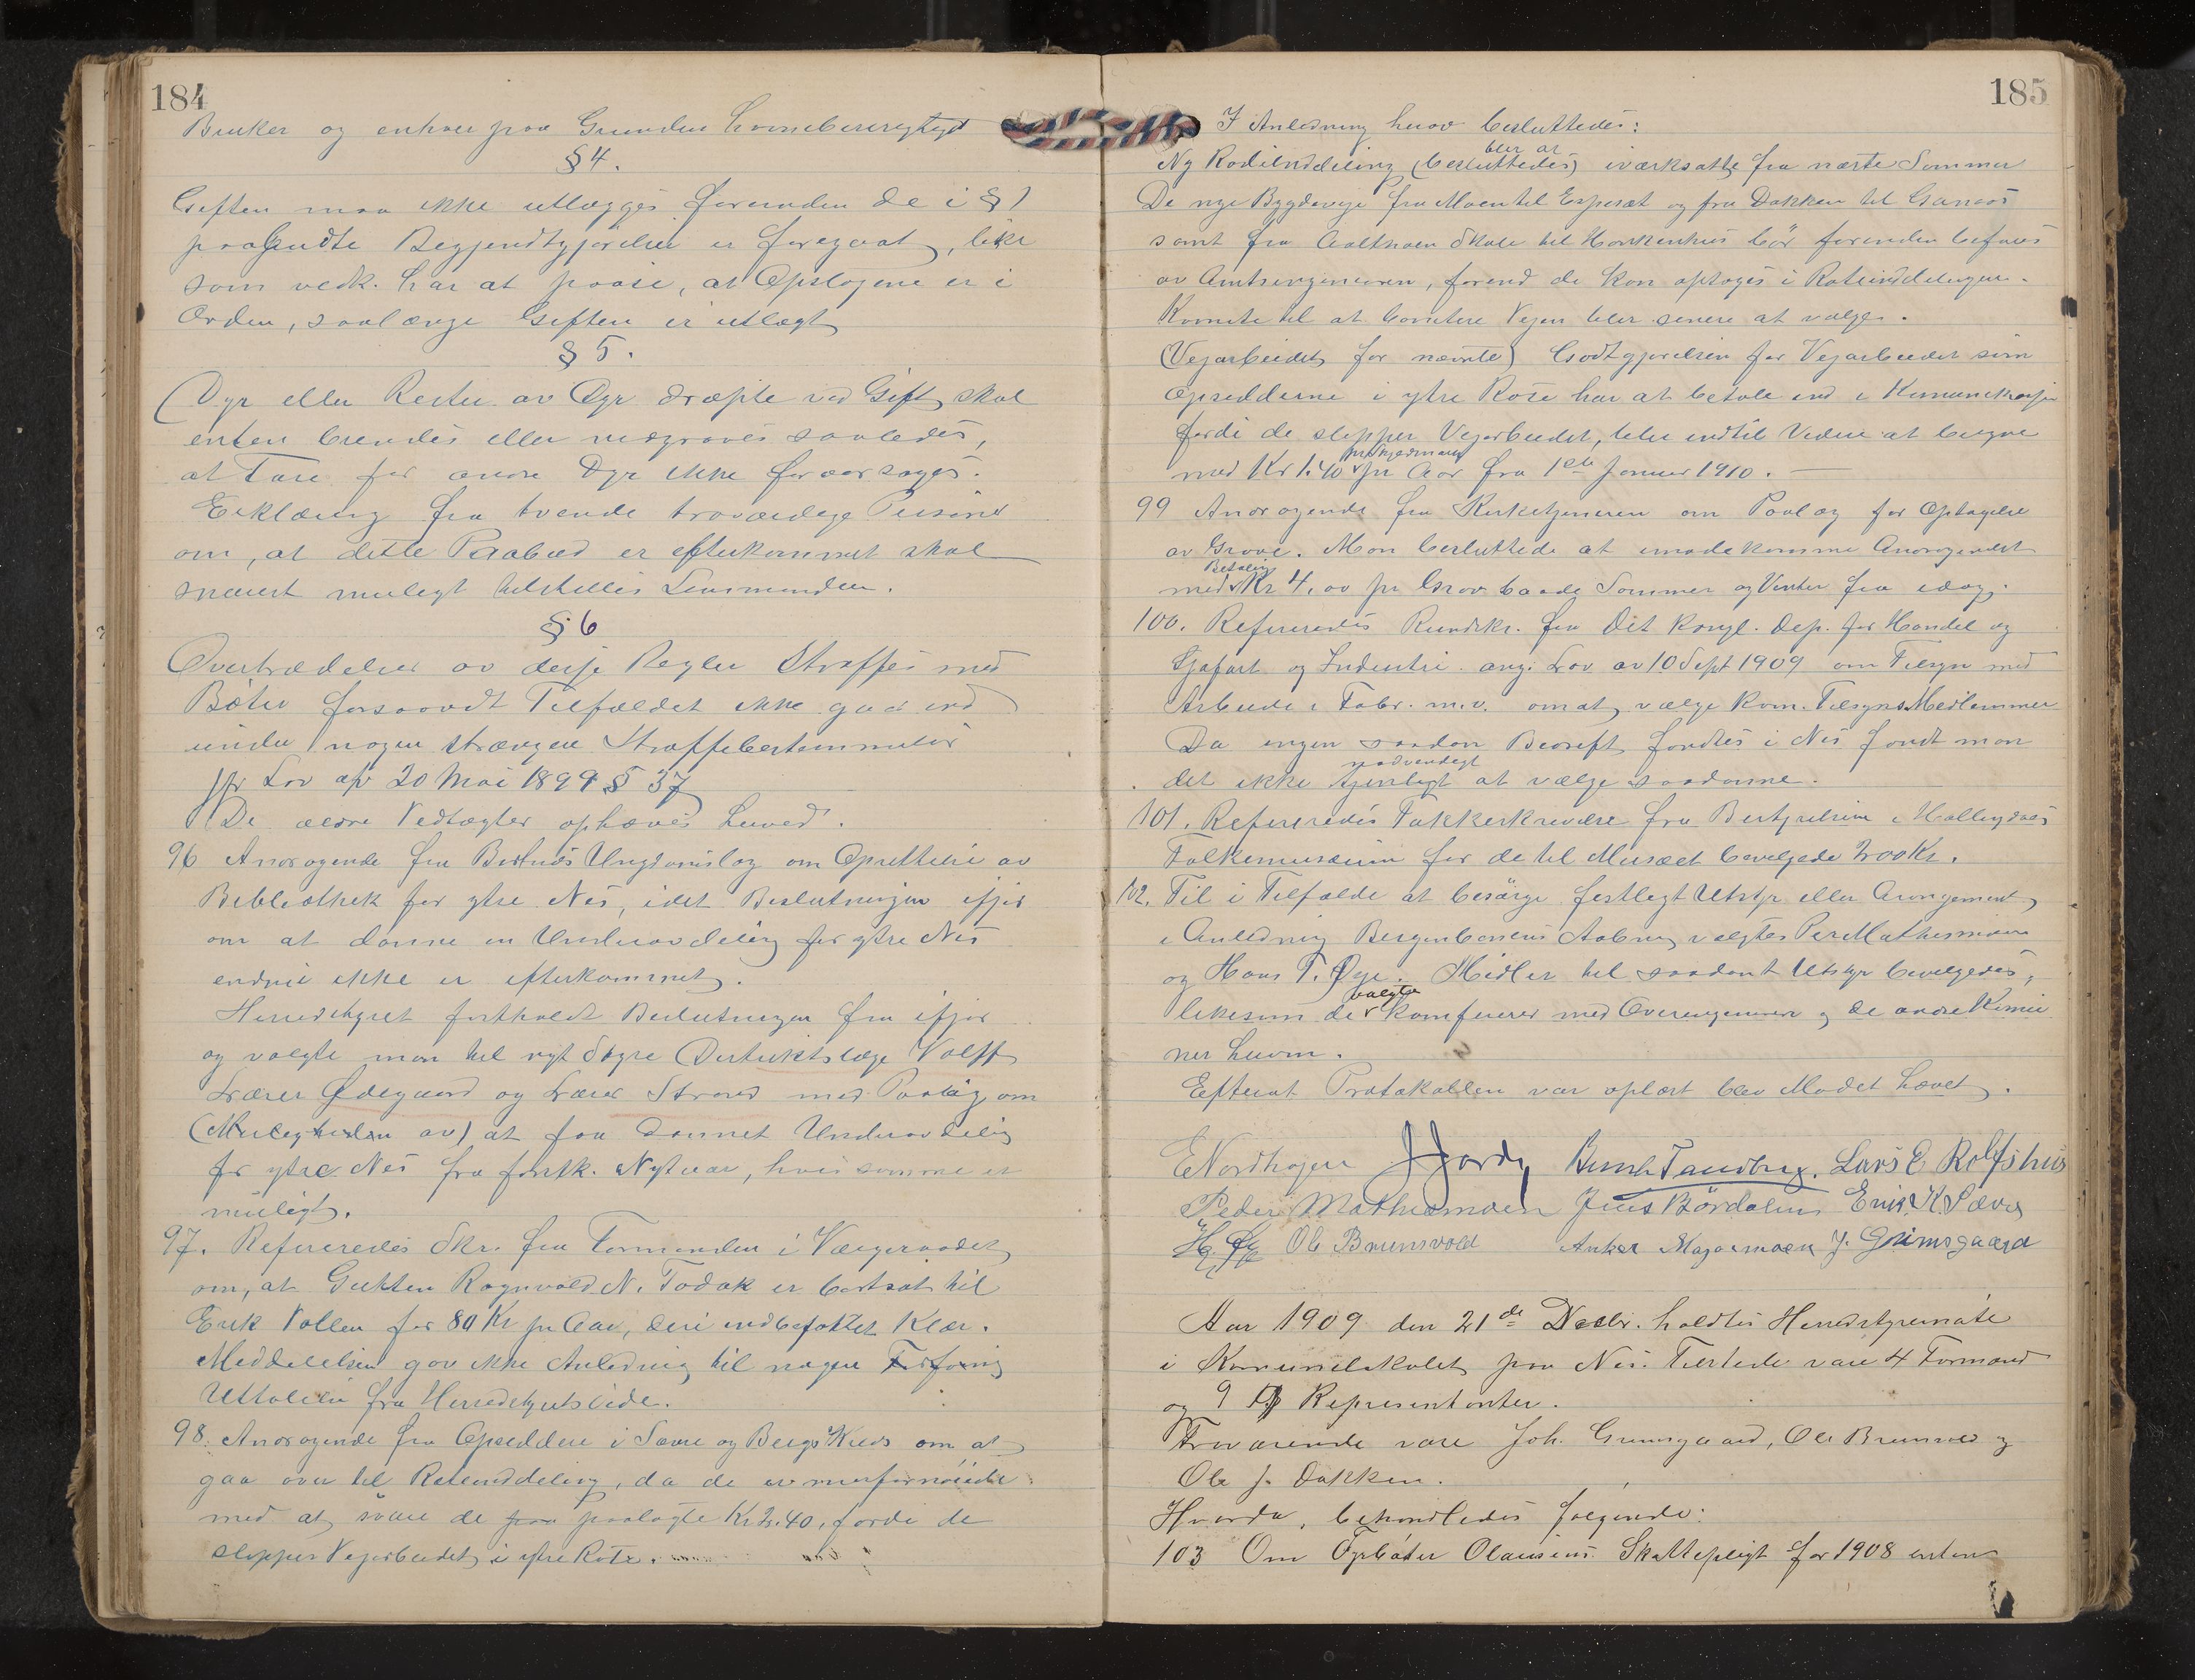 184
Bruker og enhver paa Grunden havneberettiget
§ 4.
Giften maa ikke utlægges forinden de i § 1
paabudte Begjendtgjørelser er foregaat, like
som vedk. har at paase, at Opslagene er i
Orden, saalænge Giften er utlagt
§ 5.
Dyr eller Rester av Dyr dræpte ved Gift skal
enten brendes eller nedgraves saaledes,
at Fare for andre Dyr ikke foraarsages.
Erklæring fra tvende troværdige Personer
om, at dette Paabud er efterkommet skal
snarest muligt tilstilles Lensmanden.
§ 6
Overtrædelser av disse Regler straffes med
Bøter forsaavdt Tilfældet ikke gaar ind
under nogen strængere Straffebestemmelse
jfr Lov af 20 Mai 1899 § 37
De ældre Vedtægter ophæves herved.
96 Andragende fra Ungdomslag om Oprettelse av
Bibliothek for ytre Nes, idet Beslutningen ifjor
om at danne en Underavdeling for ytre Nes
endnu ikke er efterkommet.
Herredstyret fastholdt Beslutningen fra ifjor
og valgte man til nyt Styre Distriktslæge Wolff
Lærer Ødegaard og Lærer Strand med Paalæg om
(Muligheden av) at faa dannet Underavdeling
for ytre Nes fra førstk. Nytaar, hvis samme er
muligt.
97. Refereredes Skr. fra Formanden i Værgeraadet
om, at Gutten Ragnvald N. Todak er bortsat til
Erik Vollen for 80 Kr pr Aar, deri indbefattet Klær.
Meddelelsen gav ikke Anledning til nogen
Uttalelse fra Herredstyrets Side.
98. Andragende fra Opsiddere i Sævre og Bergs Kreds om at
gaa over til Rodeinddeling, da de er misfornøiede
med at svare de paalagte Kr 2.40, fordi de
slipper Vejarbeidet i ytre Rote.
185
I Anledning herav besluttedes:
blir at
Ny Rodeinddeling (besluttedes) iværksatte fra næste Sommer
De nye Bygdeveje fra Moen til Espeset og fra Dokken til Garnaas
samt fra Skole til bør forinden befares
av Amtsingeniøren, førend de kan optages i Roteinddelingen.
Komite til at bonitere Vejen blir senere at vælge.
(Vejarbeidet for nævnte) Godtgjørelsen for Vejarbeidet som
Opsidderne i ytre Rote har at betale ind i Komunekassen
fordi de slipper Vejarbeidet, blir indtil Videre at beregne
med Kr 1.40 pr Aar fra 1ste Januar 1910.
99 Andragende fra Kirketjeneren om Paalæg for Optagelse
av Grave. Man besluttede at imødekomme Andragendet
Betaling
med Kr 4,00 pr Grav baade Sommer og Vinter fra idag.
100. Refereredes Rundskr. fra Det kongl. Dep. for Handel og
Sjøfart og Industri ang. Lov av 10 Sept 1909 om Tilsyn med
Arbeide i Fabr. m.v. om at vælge Kom. Tilsyns Medlemmer
Da ingen saadan Bedrift fandtes i Nes fandt man
nødvendigt
det ikke tjenligt at vælge saadanne.
101. Refereredes Takkeskrivelse fra Bestyrelsen i Hallingdals
Folkemuseum for de til Museet bevilgede 200 Kr.
102. Til i Tilfælde at besørge festligt Utstyr eller Arangement
i Anledning Bergensbanens Aabning valgtes Per Mathismoen
og Hans T. Øye. Midler til saadant Utstyr bevilgedes,
valgte
likesom de konfererer med Overingeniøren og de andre Komu
ner herom.
Efterat Protokollen var oplæst blev Mødet hævet.
E Nordhagen J Jordy Tandberg. Lars E Rolfshus
Peder Mathismoen Jens Bördalen Erik K. Sævre
H. Øye Ole Brunsvold Anker Magaarmoen J. Grimsgaard
Aar 1909 den 21de Decbr. holdtes Herredstyremøte
i Komunelokalet paa Nes. Tilstede vare 4 Formænd
og 9 Representanter.
Fraværende vare Joh. Grimsgaard, Ole Brunsvold og
Ole J. Dokken.
Hvorda, behandledes følgende:
103 Om Fyrbøter Olausens Skattepligt for 1908 enten